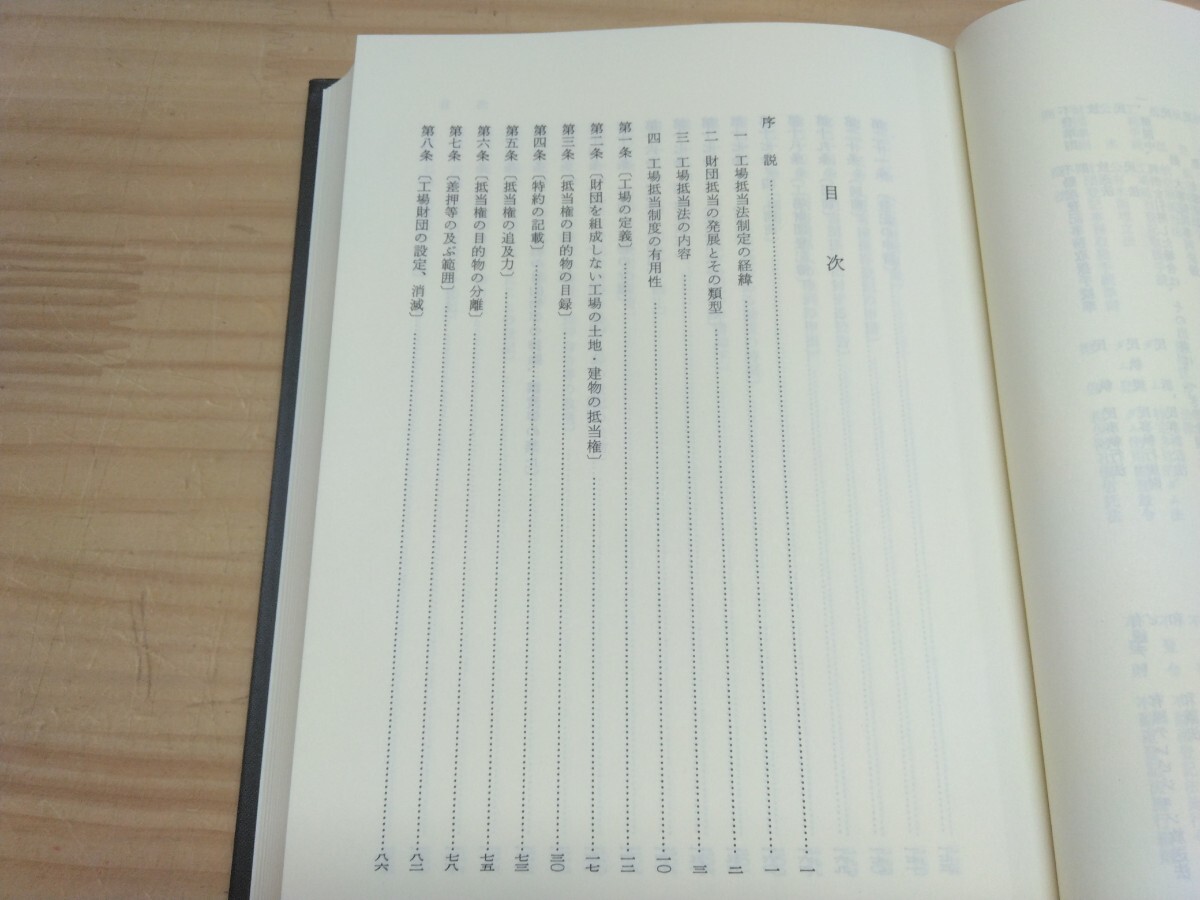 目次
序説……一
一 工場抵当法制定の経緯……一
二 財団抵当の発展とその類型……二
三 工場抵当法の内容……三
四 工場抵当制度の有用性……一〇
第一条〔工場の定義〕……一二
第二条〔財団を組成しない工場の土地・建物の抵当権〕……一七
第三条〔抵当権の目的物の目録〕……三〇
第四条〔特約の記載〕……七三
第五条〔抵当権の追及力〕……七五
第六条〔抵当権の目的物の分離〕……七八
第七条〔差押等の及ぶ範囲〕……八二
第八条〔工場財団の設定、消滅〕……八六